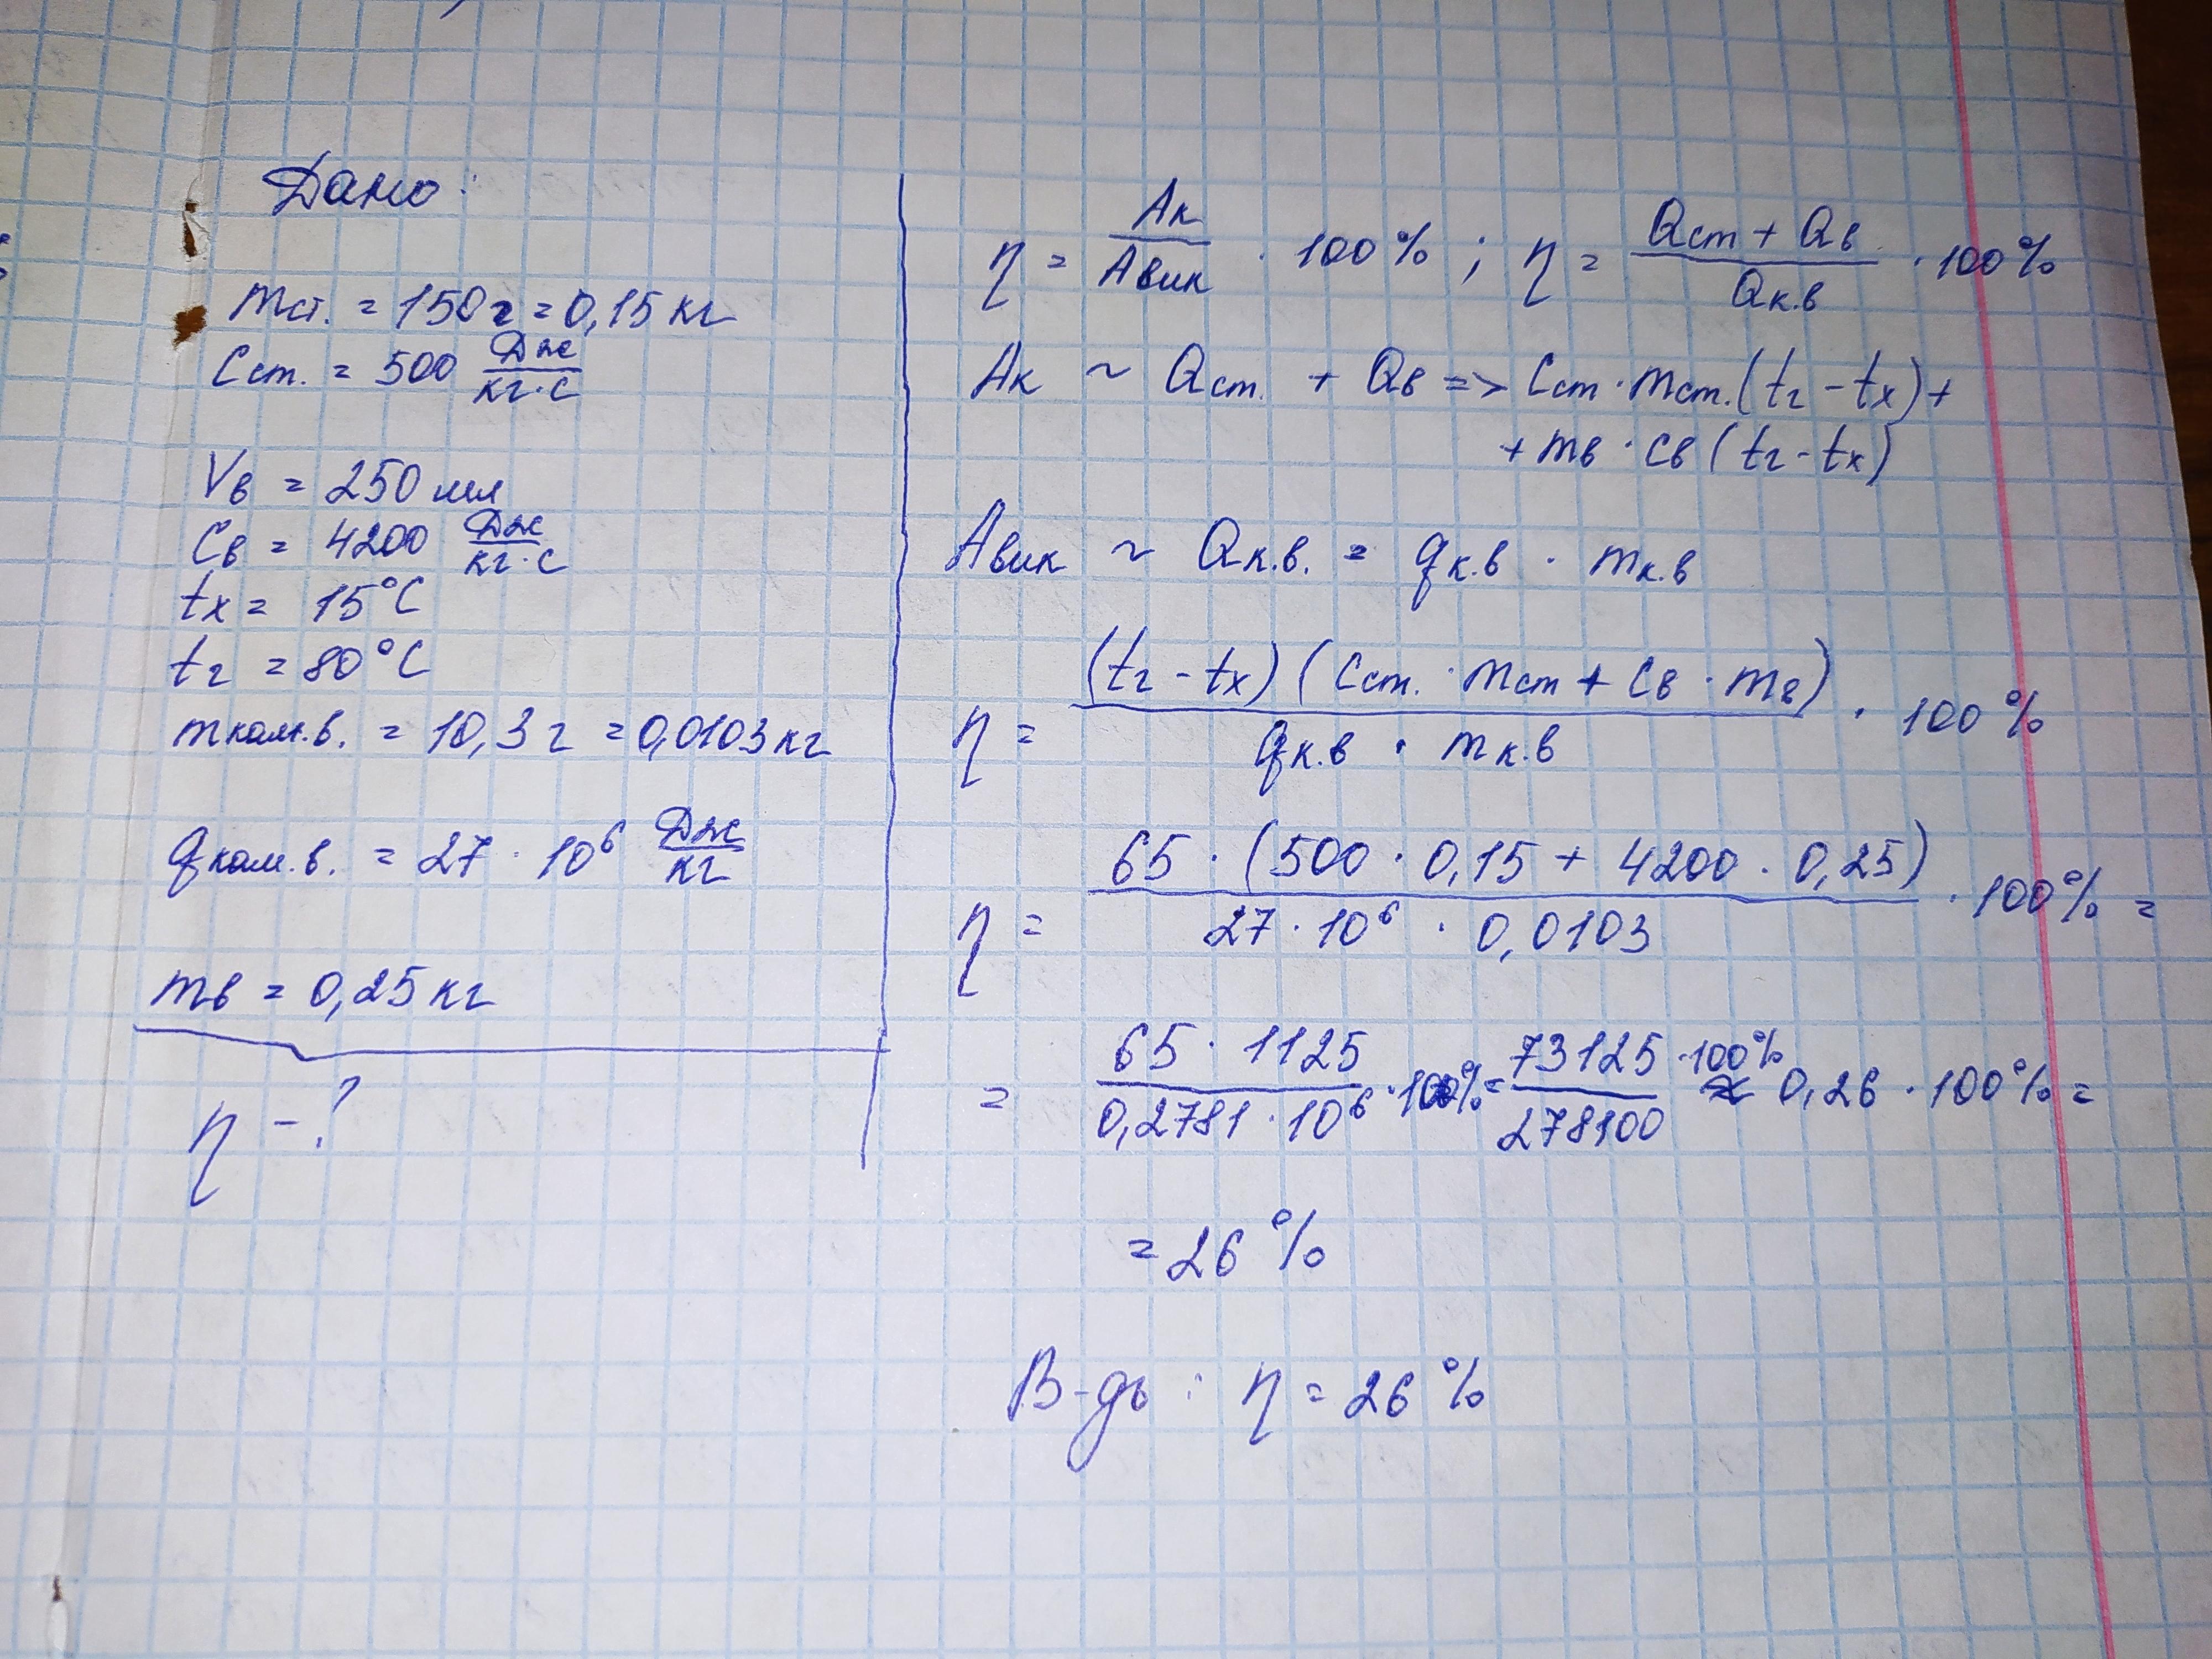 Дано:
mст. = 150г = 0,15 кг
Cст. = 500 Дж/кг·С
Vв = 250 мл
Cв = 4200 Дж/кг·С
tх = 15°C
tг = 80°C
mкам.в. = 10,3 г = 0,0103 кг
qкам.в. = 27 · 10⁶ Дж/кг
mв = 0,25 кг
η - ?
η = Aк/Aвик · 100 % ; η = Qст + Qв/Qк.в · 100%
Aк ~ Qст. + Qв => Cст · mст. (tг - tх) +
+ mв · Cв (tг - tх)
Aвик ~ Qк.в. = qк.в · mк.в
η = (tг - tх) (Cст. · mст + Cв · mв)/qк.в · mк.в · 100 %
η = 65 · (500 · 0,15 + 4200 · 0,25)/27 · 10⁶ · 0,0103 · 100% =
= 65 · 1125/0,2781 · 10⁶ · 100% = 73125/278100 · 100% ≈ 0,26 · 100% =
= 26 %
В-дь : η = 26 %